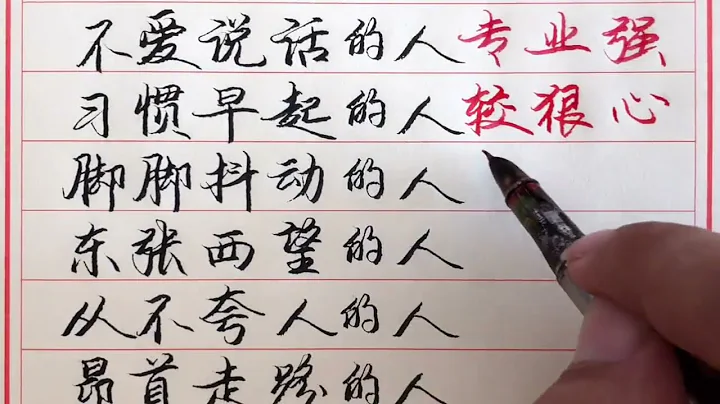 不爱说话的人专业强
习惯早起的人较狠心
脚脚抖动的人
东张西望的人
从不夸人的人
昂首走路的人